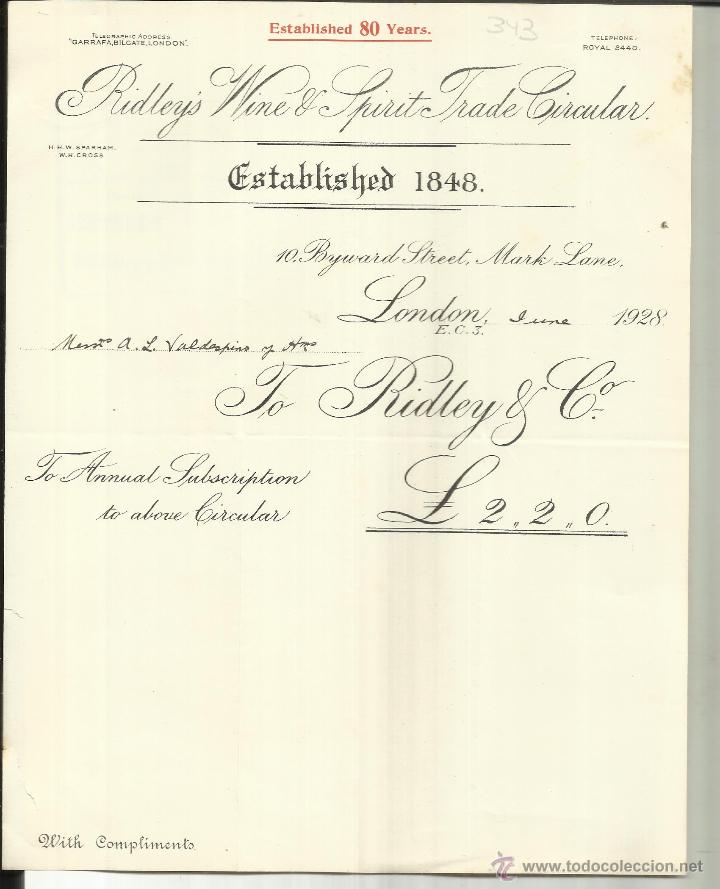 Established 80 Years.
343
TELEGRAPHIC ADDRESS
"GARRAFA, BILGATE, LONDON".
TELEPHONE:
ROYAL 8440.
Ridley's Wine & Spirit Trade Circular.
H.H.W. SPARHAM.
W.H. CROSS
Established 1848.
10, Byward Street, Mark Lane,
London, June 1928
E.C.3.
Messrs A. L. Valdespino y Hno
To Ridley & Co.
To Annual Subscription
to above Circular
£ 2 " 2 " 0.
With Compliments
www.todocoleccion.net